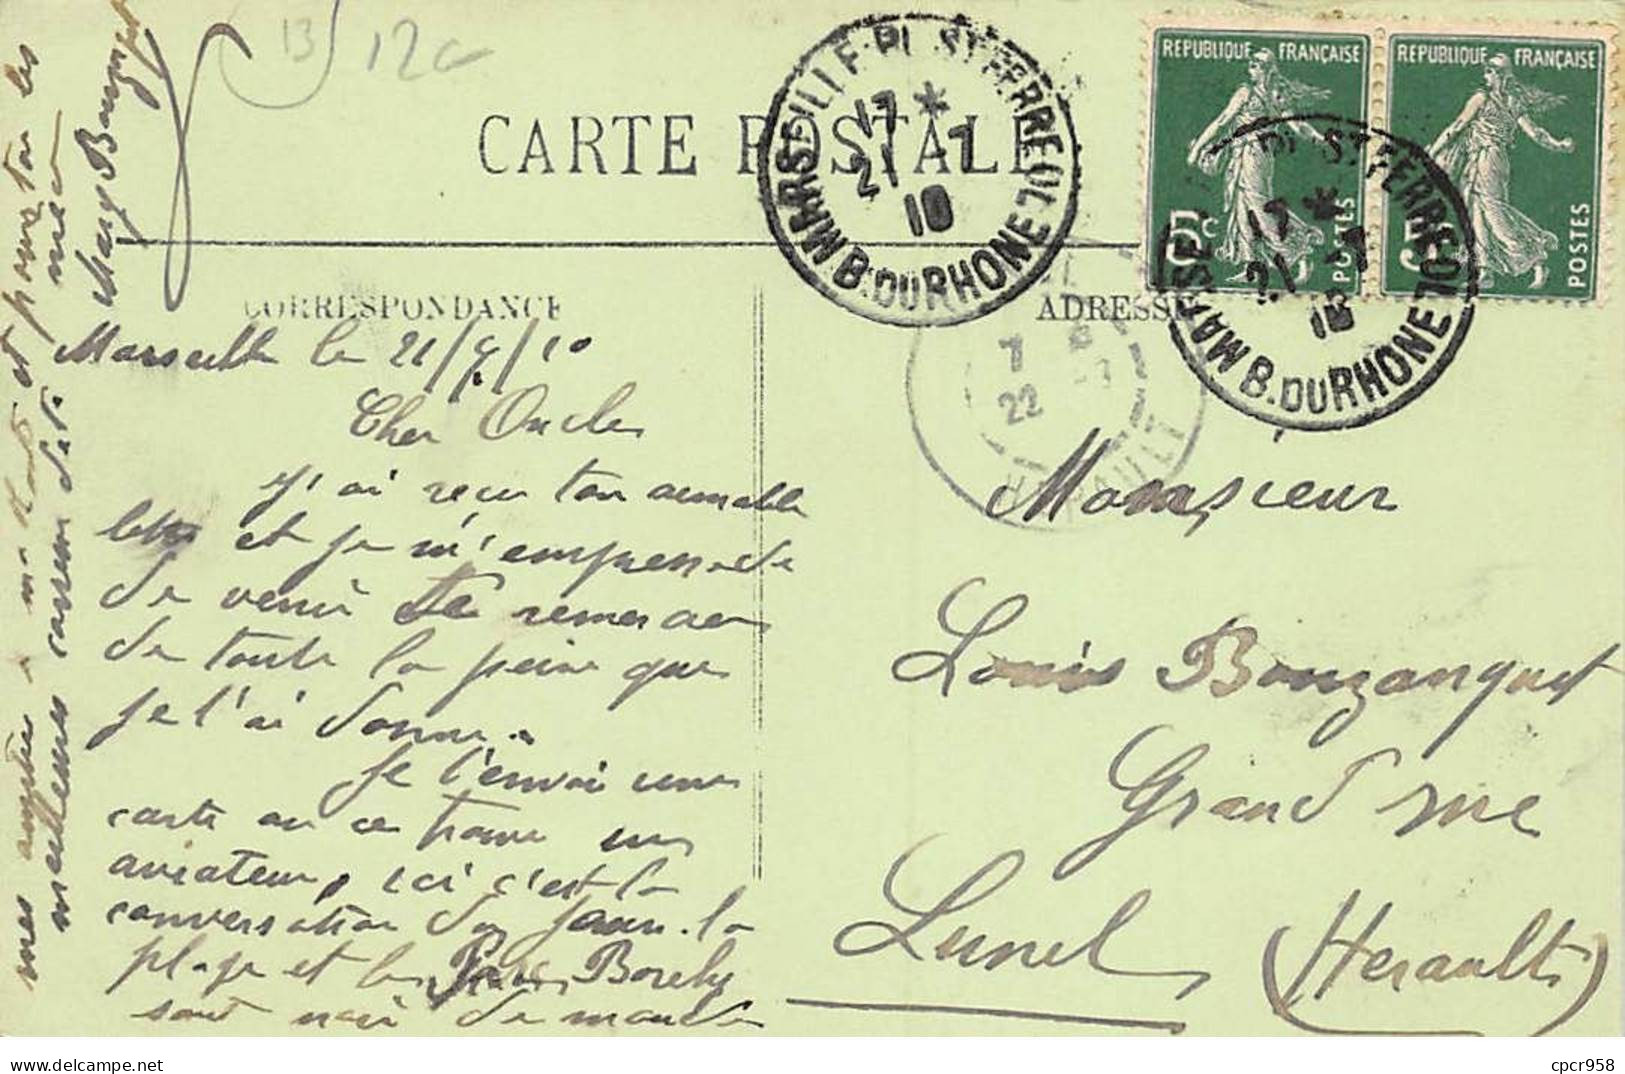 13 12c
CARTE POSTALE
CORRESPONDANCE
ADRESSE
REPUBLIQUE FRANÇAISE
POSTES
5c
REPUBLIQUE FRANÇAISE
POSTES
MARSEILLE-PL. ST FERREOL
17 * 21 -7 10
B. DU RHONE
PL ST FERREOL
17 * 21 -7 10
MARSE B. DU RHONE
7 22
HERAULT
Marseille le 21/7/10
Cher Oncle
J'ai reçu ton aimable
lettre et je m'empresse de
de venir te remercier
de toute la peine que
je t'ai donné.
Je t'envoi une
carte ou ce trouve un
aviateur, ici c'est la
conversation du jour. la
plage et le Parc Borely
sont noir de monde
mes amitiés a ma tante et pour toi les
meilleures caresses de ta nièce
Mary Bouzanquet
Monsieur
Louis Bouzanquet
Grand rue
Lunel (Herault)
cpcr958